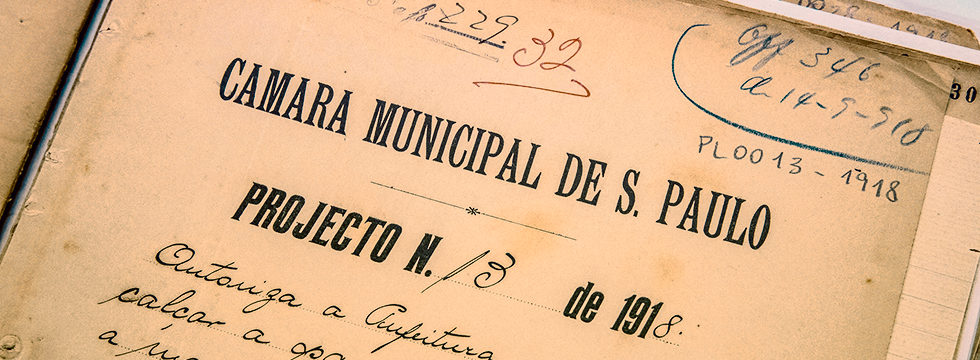 229. 32.
Off 346
de 14-9-918
30
CAMARA MUNICIPAL DE S. PAULO
PL0013-1918
PROJECTO N. 13 de 1918.
Autoriza a Prefeitura
calçar a pa
a